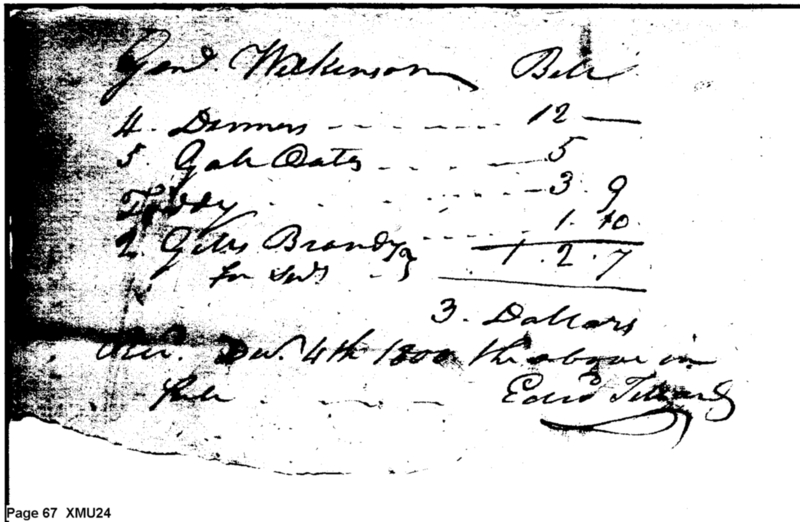 Genl. Wilkinson Bill
4. Dinners - - - - - 12 —
5. Gals Oats - - - - 5
Toddy - - - - - 3. 9
2. Gills Brandy - - - - 1. 10
for Servts - } 1. 2. 7
3. Dollars
Recd. Decr. 4th 1800 the above in
full - - - Edwd
Page 67 XMU24